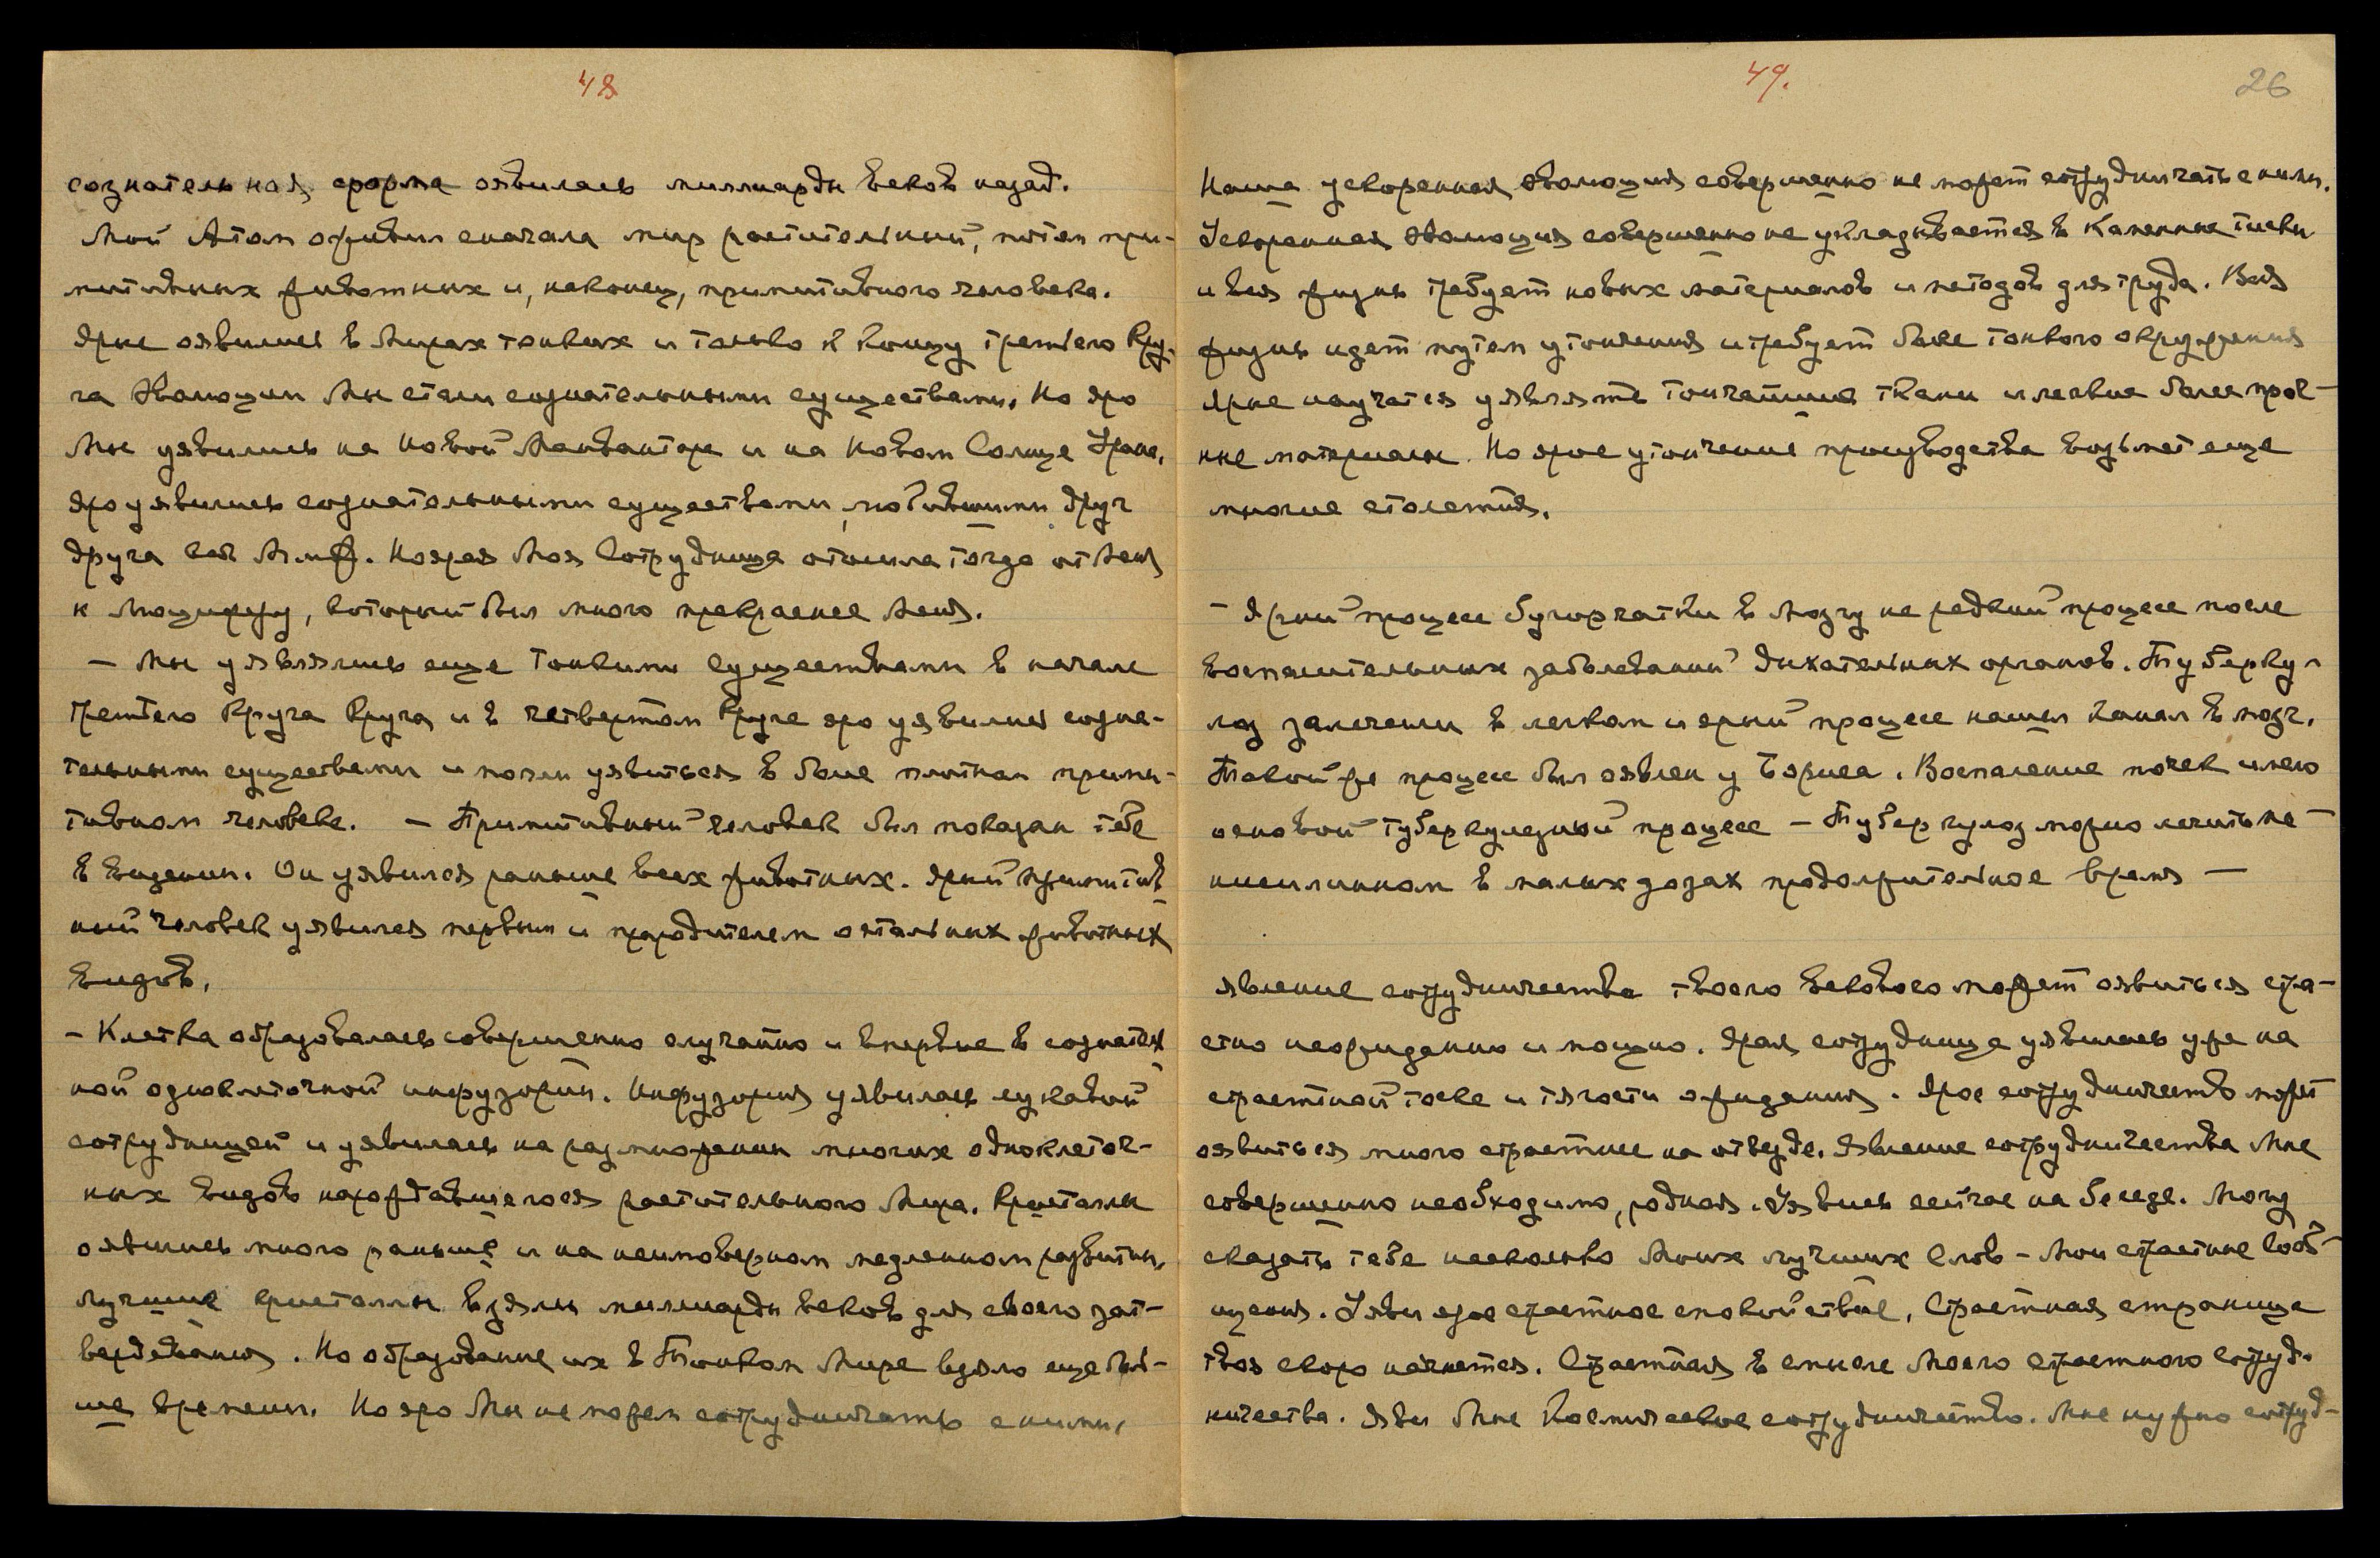 48
сознательная форма оявилась миллиарды веков назад.
Мой Атом оживил сначала мир растительный, потом при-
митивных животных и, наконец, примитивного человека.
Ярые оявились в Мирах тонких и только к концу третьего Кру-
га Эволюции Мы стали сознательными существами. Но яро
Мы уявились на новой Манвантаре и на новом Солнце Уране.
Яро уявились сознательными существами, любившими друг
друга как Но ярая Моя Сотрудница отошла тогда от Меня
к Люциферу, который был много прекраснее Меня.
— Мы уявлялись еще тонкими существами в начале
третьего Круга Круга и в четвертом Круге яро уявились созна-
тельными существами и могли уявиться в более плотном прими-
тивном человеке. — Примитивный человек был показан тебе
в видении. Он уявился раньше всех животных. Ярый примитив
ный человек уявился первым и прародителем остальных животных
видов.
— Клетка образовалась совершенно случайно и впервые в сознатель
ной одноклеточной инфузории. Инфузория уявилась лукавой
сотрудницей и уявилась на размножении многих одноклеточ-
ных видов нарождавшегося растительного Мира. Кристаллы
оявились много раньше и на неимоверном медленном развитии.
Лучшие кристаллы взяли миллиарды веков для своего зат-
вердевания. Но образование их в Тонком Мире взяло еще боль-
ше времени. Но яро Мы не можем сотрудничать с ними,
49.
26
Наша ускоренная эволюция совершенно не может сотрудничать с ними.
Ускоренная эволюция совершенно не укладывается в Каменные тиски
и вся жизнь требует новых материалов и методов для труда. Вся
жизнь идет путем утончения и требует более тонкого окружения
Ярые научатся уявлять тончайшие ткани и легкие более проч-
ные материалы. Но ярое утончение производства возьмет еще
многие столетия.
— Ярый процесс бугорчатки в мозгу не редкий процесс после
воспалительных заболеваний дыхательных органов. Туберку-
лоз залечили в легком и ярый процесс нашел канал в мозг.
Такой же процесс был оявлен у Бориса. Воспаление почек имело
основой туберкулезный процесс — Туберкулоз можно лечить пе-
нисиллином в малых дозах продолжительное время —
Явление сотрудничества твоего векового может оявиться стра-
стно неожиданно и мощно. Ярая сотрудница уявилась уже на
страстной тоске и тягости ожидания. Ярое сотрудничество может
оявиться много страстнее на отъезде. Явление сотрудничества Мне
совершенно необходимо, родная. Уявись сейчас на беседе. Могу
сказать тебе несколько Моих лучших Слов — Мои страстные Сооб-
щения. Уяви ярое страстное спокойствие. Страстная страница
твоя скоро начнется. Страстная в смысле Моего страстного Сотруд-
ничества. Яви Мне Космическое сотрудничество. Мне нужно сотруд-